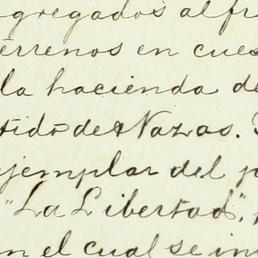 gregados al fr
terrenos en cues
la hacienda de
tido de Nazas.
ejemplar del p
"La Libertad",
en el cual se in